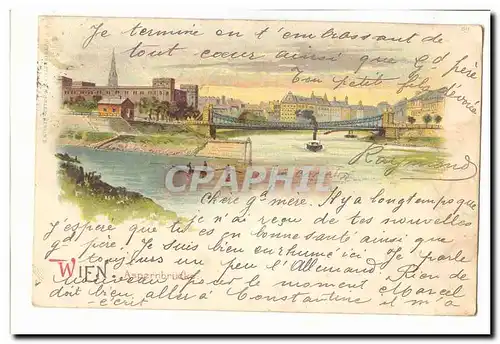 Je termine en t'embrassant de
tout cœur ainsi que gd père
Ton petit fils dévoué
Raymond
Chère gd mère. Il y a longtemps que
je n'ai reçu de tes nouvelles
j'espère que tu es en bonne santé ainsi que
gd père. Je suis bien enrhumé ici. Je parle
toujours un peu l'Allemand. Rien de
nouveau pour le moment Marcel
doit bien aller à Constantine il m'a
écrit
WIEN
Aspernbrücke
CPARAMA